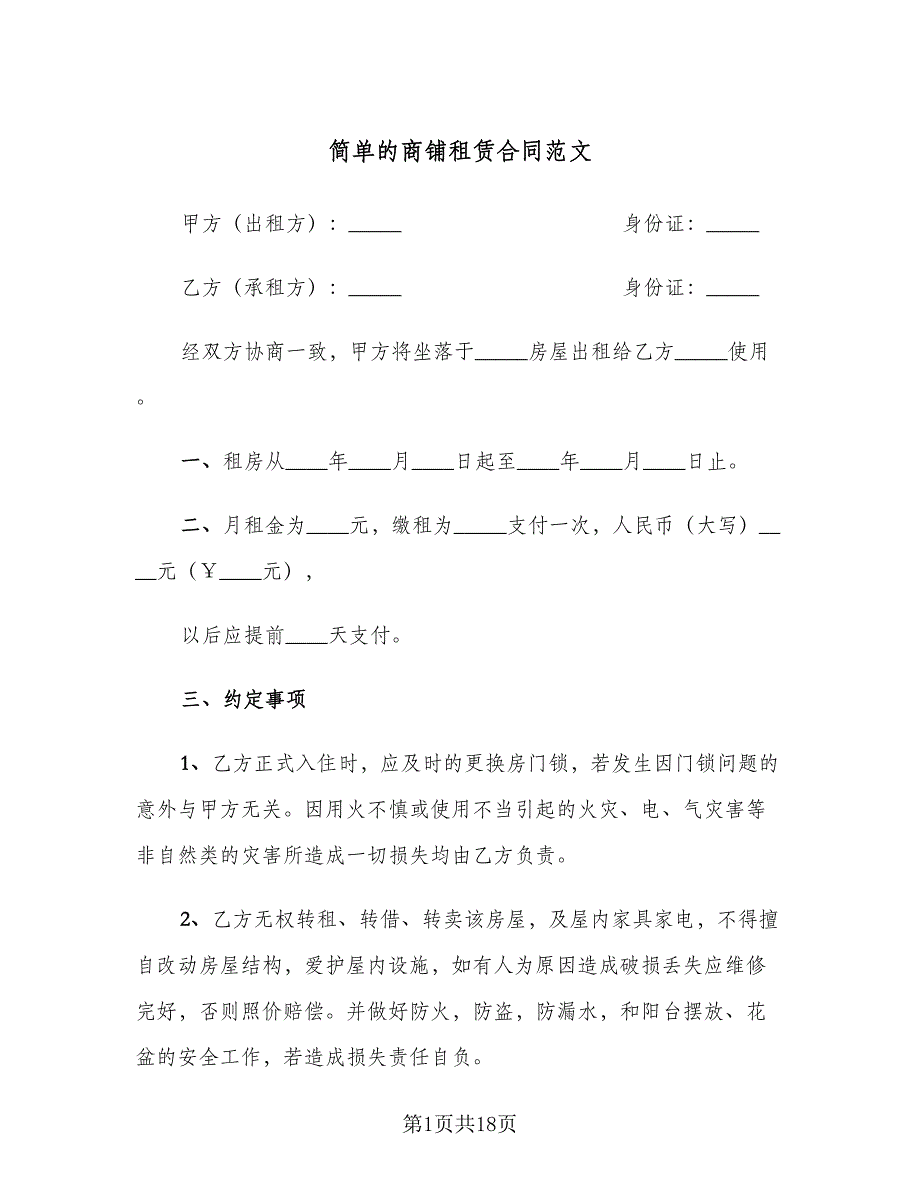 简单的商铺租赁合同范文
甲方（出租方）：_____ 身份证：_____
乙方（承租方）：_____ 身份证：_____
经双方协商一致，甲方将坐落于_____房屋出租给乙方_____使用
。
一、租房从____年____月____日起至____年____月____日止。
二、月租金为____元，缴租为_____支付一次，人民币（大写）__
__元（￥____元），
以后应提前____天支付。
三、约定事项
1、乙方正式入住时，应及时的更换房门锁，若发生因门锁问题的
意外与甲方无关。因用火不慎或使用不当引起的火灾、电、气灾害等
非自然类的灾害所造成一切损失均由乙方负责。
2、乙方无权转租、转借、转卖该房屋，及屋内家具家电，不得擅
自改动房屋结构，爱护屋内设施，如有人为原因造成破损丢失应维修
完好，否则照价赔偿。并做好防火，防盗，防漏水，和阳台摆放、花
盆的安全工作，若造成损失责任自负。
第1页共18页